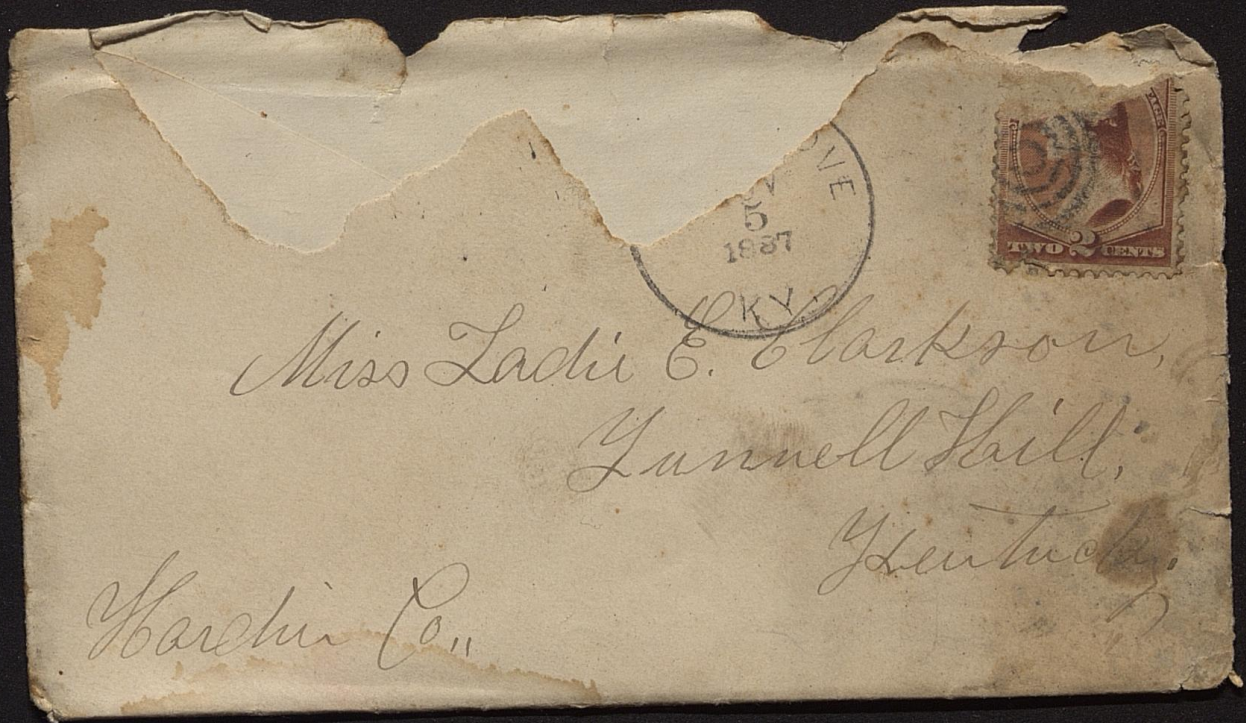 OVE
5
1887
KY.
TWO 2 CENTS
Miss Zadie E. Clarkson,
Tunnell Hill,
Kentucky.
Hardin Co.,,